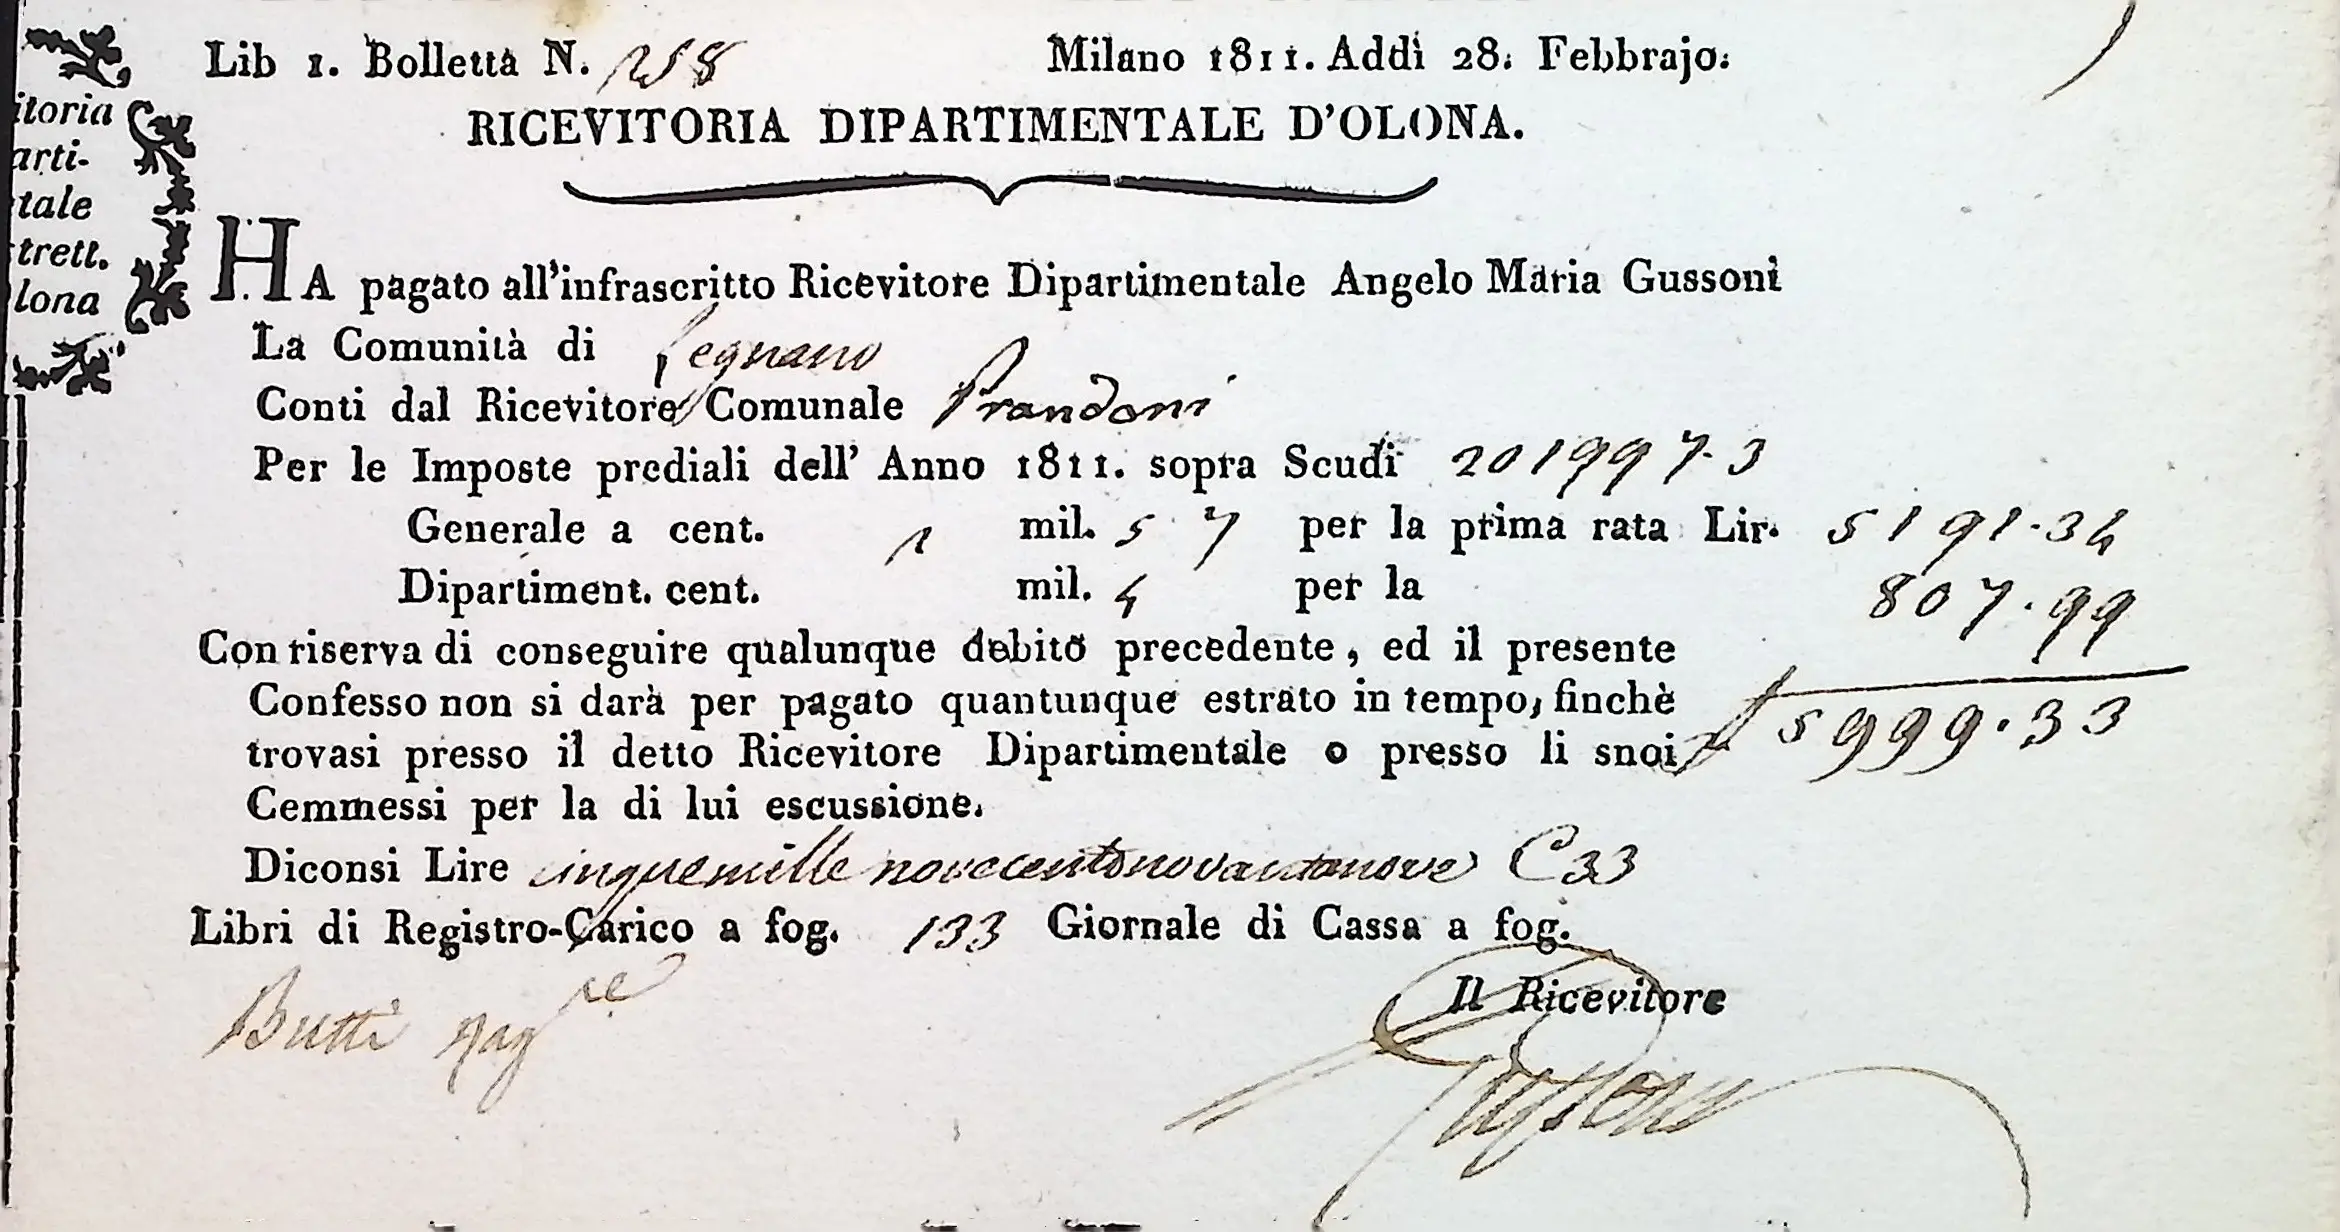 Lib 1. Bolletta N. 258 Milano 1811. Addì 28. Febbrajo.
RICEVITORIA DIPARTIMENTALE D'OLONA.
itoria
arti-
tale
trett.
lona
HA pagato all'infrascritto Ricevitore Dipartimentale Angelo Maria Gussoni
La Comunità di Legnano
Conti dal Ricevitore Comunale Prandoni
Per le Imposte prediali dell' Anno 1811. sopra Scudi 201997.3
Generale a cent. 2 mil. 5 7 per la prima rata Lir. 5191.34
Dipartiment. cent. mil. 4 per la 807.99
Con riserva di conseguire qualunque debito precedente, ed il presente
Confesso non si darà per pagato quantunque estrato in tempo, finchè
trovasi presso il detto Ricevitore Dipartimentale o presso li snoi 5999.33
Cemmessi per la di lui escussione.
Diconsi Lire cinquemille novecentonovantanove C 33
Libri di Registro-Carico a fog. 133 Giornale di Cassa a fog.
Il Ricevitore
Butti Ragre
Gussoni